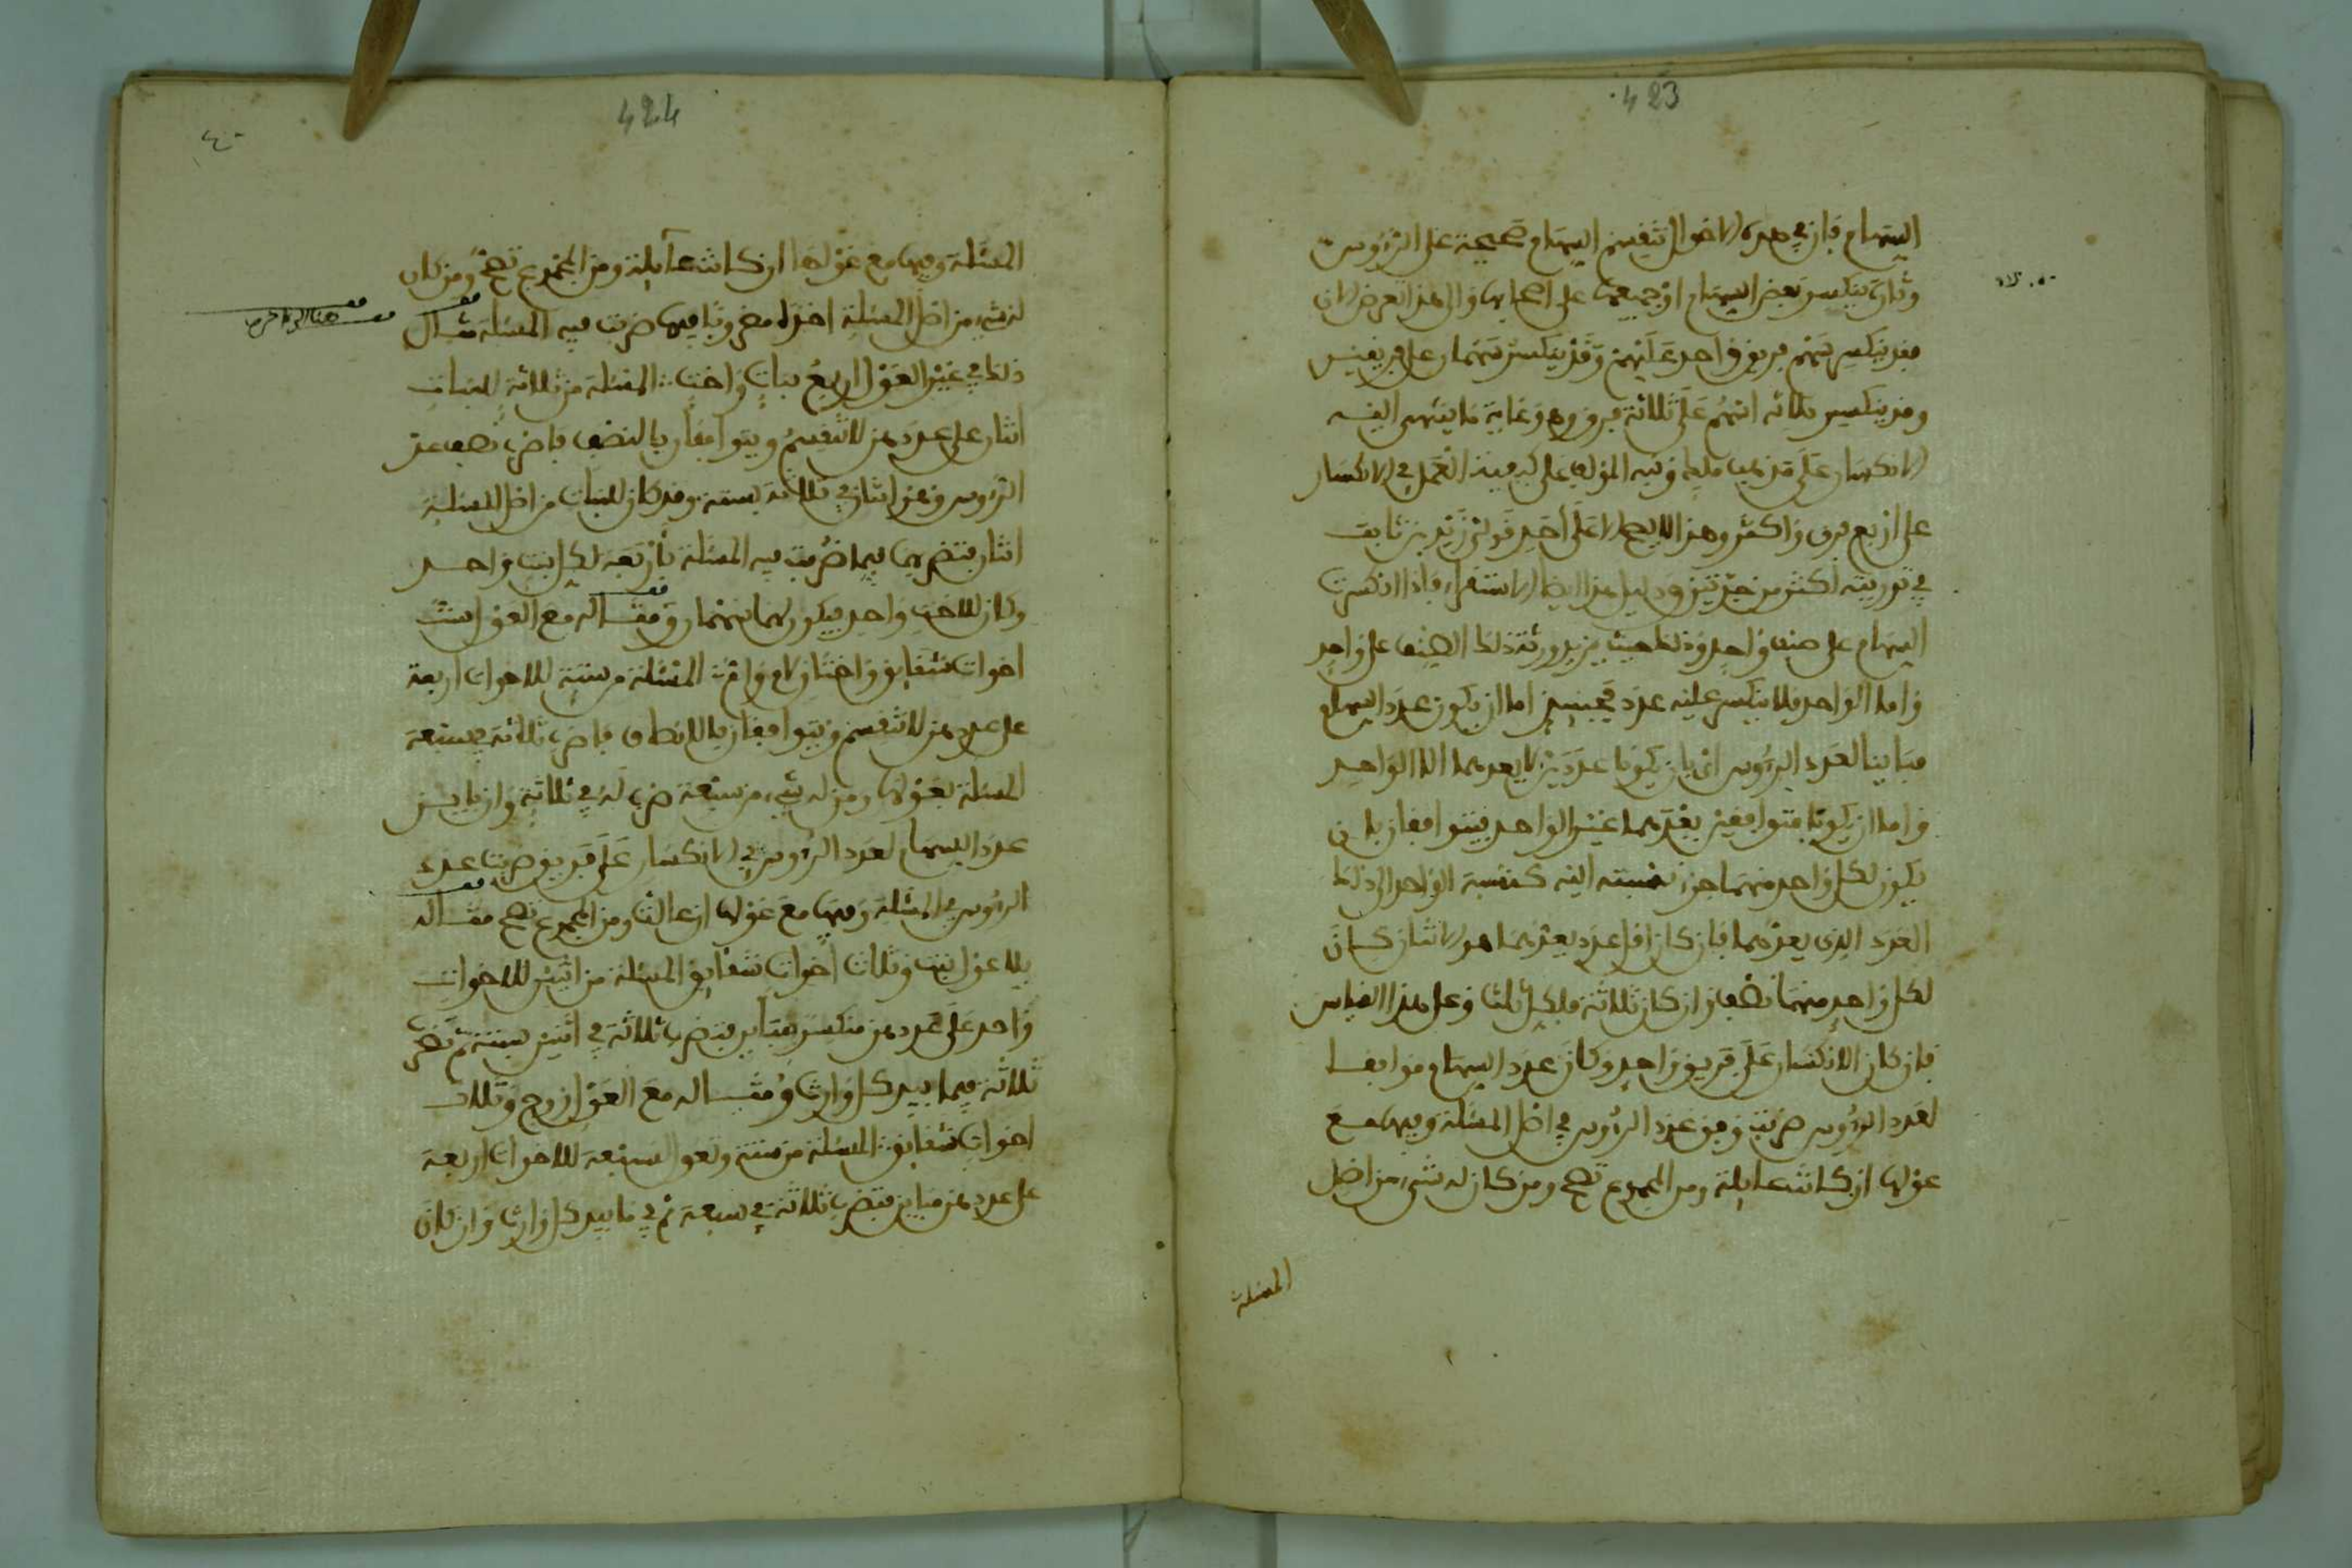 423
السهام فان في هذه الاحوال تنقسم السهام صحيحة على الرؤوس
وتارة ينكسر بعض السهام او جميعها على اصحابها والى هذا تعرض لان
فقد ينكسر سهم فريق واحد عليهم وقد ينكسر سهمان على فريقين
وقد ينكسر ثلاثة اسهم على ثلاثة فروق وهو غاية ما ينتهى اليه
الانكسار على مذهب ملك ونبه المؤلف على كيفية العمل في الانكسار
على اربع فرق واكثر وهذا لا يصح الا على احد قولي زيد بن ثابت
في توريثه اكثر من جدتين ودليل هذا ايضا الاستقراء فاذا انكسرت
السهام على صنف واحد وذلك حيث يزيد ورثة ذلك الصنف على واحد
واما الواحد فلا ينكسر عليه عدد فحينئذ اما ان يكون عدد السهام
مباينا لعدد الرؤوس اي بان يكونا عددين لا يعدهما الا الواحد
واما ان يكونا متوافقين بعدهما غير الواحد فيتوافقان بان
يكون لكل واحد منهما جزء نسبته اليه كنسبة الواحد الى ذلك
العدد الذي يعدهما فان كان اقل عدد يعدهما هو الاثنان كان
لكل واحد منهما نصف وان كان ثلاثة فلكل ثلث وعلى هذا القياس
فان كان الانكسار على فريق واحد وكان عدد السهام موافقا
لعدد الرؤوس ضربت وفق عدد الرؤوس في اصل المسئلة وفيها مع
عولها ان كانت عايلة ومن المجموع تصح ومن كان له شيء من اصل
المسئلة
424
٤٠
المسئلة وفيها مع عولها ان كانت عايلة ومن المجموع تصح ومن كان
له شيء من اصل المسئلة اخذه مضروبا فيما ضربت فيه المسئلة مثال
ذلك في غير العول اربع بنات واخت المسئلة من ثلاثة للبنات
اثنان على عددهن لا تنقسم ويتوافقان بالنصف فاضرب نصف عدد
الرؤوس وهو اثنان في ثلاثة بستة وقد كان للبنات من اصل المسئلة
اثنان بتضربها فيما ضربت فيه المسئلة باربعة لكل بنت واحد
وكان للاخت واحد فيكون لها سهمان ومثاله مع العول ست
اخوات شقايق واختان لام وام المسئلة من ستة للاخوات اربعة
على عددهن لا تنقسم ويتوافقان بالانصاف فاضرب ثلاثة في سبعة
المسئلة بعولها ومن له شيء من سبعة ضرب له في ثلاثة وان باين
عدد السهام لعدد الرؤوس في الانكسار على فريق ضربت عدد
الرؤوس في المسئلة وفيها مع عولها ان عالت ومن المجموع تصح مثاله
بلا عول بنت وثلاث اخوات شقايق المسئلة من اثنين للاخوات
واحد على عددهن منكسر مباين فتضرب ثلاثة في اثنين بستة ثم تضرب
ثلاثة فيما بيد كل وارث ومثاله مع العول زوج وثلاث
اخوات شقايق المسئلة من ستة وتعول لسبعة للاخوات اربعة
على عددهن مباين فتضرب ثلاثة في سبعة ثم في ما بيد كل وارث وان كان